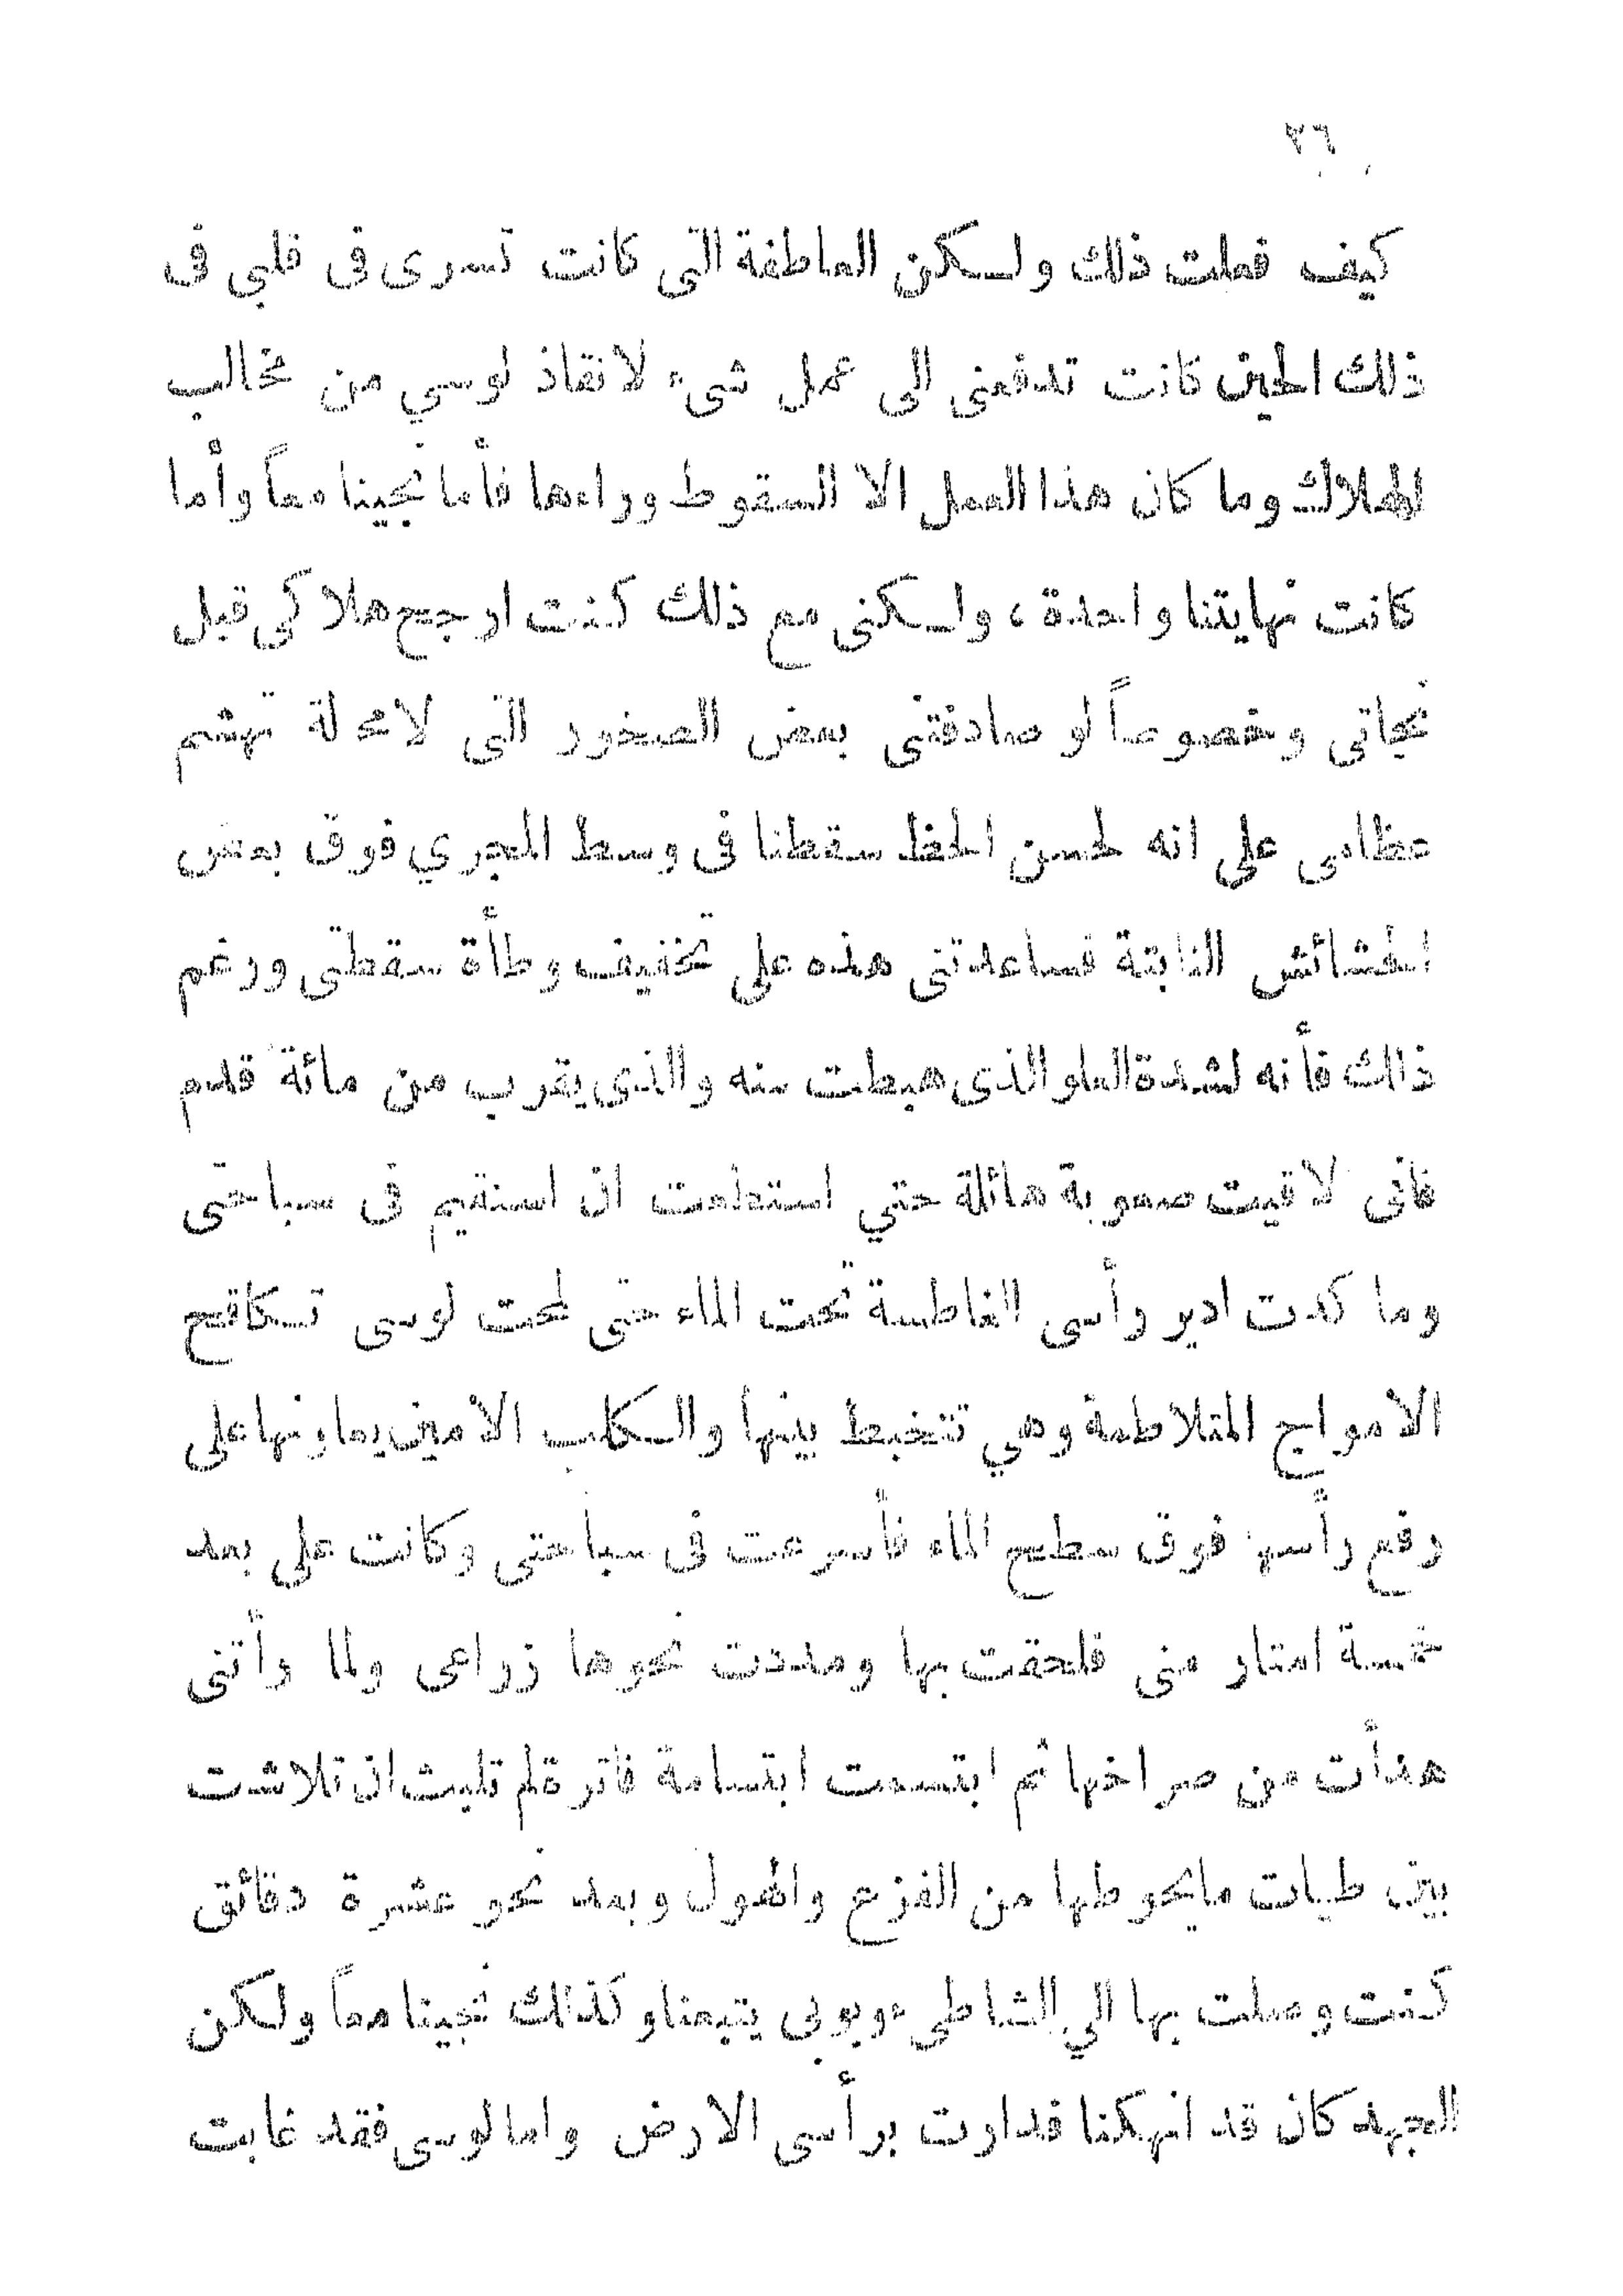 ٢٦
كيف فعلت ذلك ولكن العاطفة التى كانت تسرى فى قلبي فى
ذلك الحين كانت تدفعنى الى عمل شىء لانقاذ لوسي من مخالب
الهلاك وما كان هذا العمل الا السقوط وراءها فأما نجينا معاً وأما
كانت نهايتنا واحدة ، ولكنى مع ذلك كنت ارجح هلاكى قبل
نجاتى وخصوصاً لو صادفتنى بعض الصخور التى لامحالة تهشم
عظامى على انه لحسن الحظ سقطنا فى وسط المجري فوق بعض
الحشائش النابتة فساعدتنى هذه على تخفيف وطأة سقطتى ورغم
ذلك فأنه لشدة العلو الذى هبطت منه والذى يقرب من مائة قدم
فانى لاقيت صعوبة هائلة حتي استطعت ان استقيم فى سباحتى
وما كدت ادير رأسى الغاطسة تحت الماء حتى لمحت لوسى تكافح
الامواج المتلاطمة وهي تتخبط بينها والكلب الامين يعاونها على
رفع رأسها فوق سطح الماء فأسرعت فى سباحتى وكانت على بعد
خمسة امتار منى فلحقت بها ومددت نحوها زراعى ولما رأتنى
هدأت من صراخها ثم ابتسمت ابتسامة فاترة لم تلبث ان تلاشت
بين طيات مايحوطها من الفزع والهول وبعد نحو عشرة دقائق
كنت وصلت بها الي الشاطىء وبوبى يتبعنا وكذلك نجينا معاً ولكن
الجهد كان قد انهكنا فدارت برأسى الارض واما لوسى فقد غابت